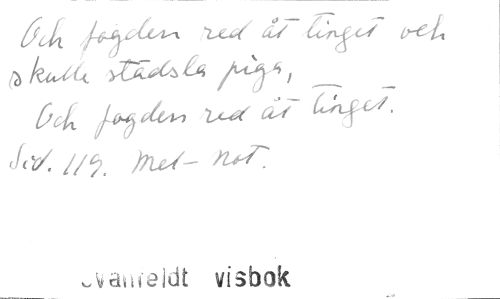 Och fogden red åt tinget och
skulle städsla piga,
Och fogden red åt tinget.
Sid. 119. Mel-not.
visbok